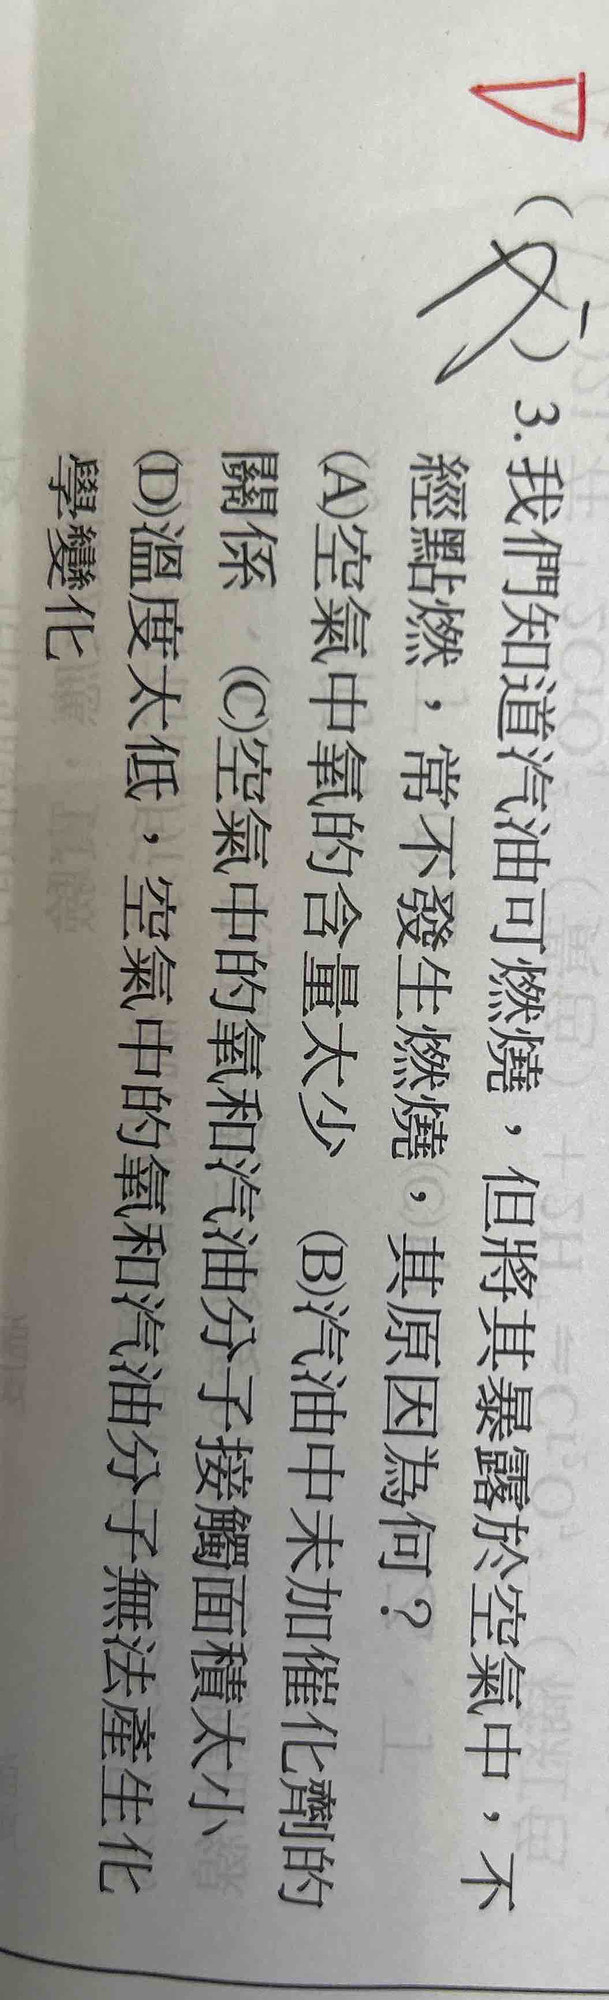 3.我們知道汽油可燃燒，但將其暴露於空氣中，不
經點燃，常不發生燃燒，其原因為何？
(A)空氣中氧的含量太少　(B)汽油中未加催化劑的
關係　(C)空氣中的氧和汽油分子接觸面積太小
(D)溫度太低，空氣中的氧和汽油分子無法產生化
學變化